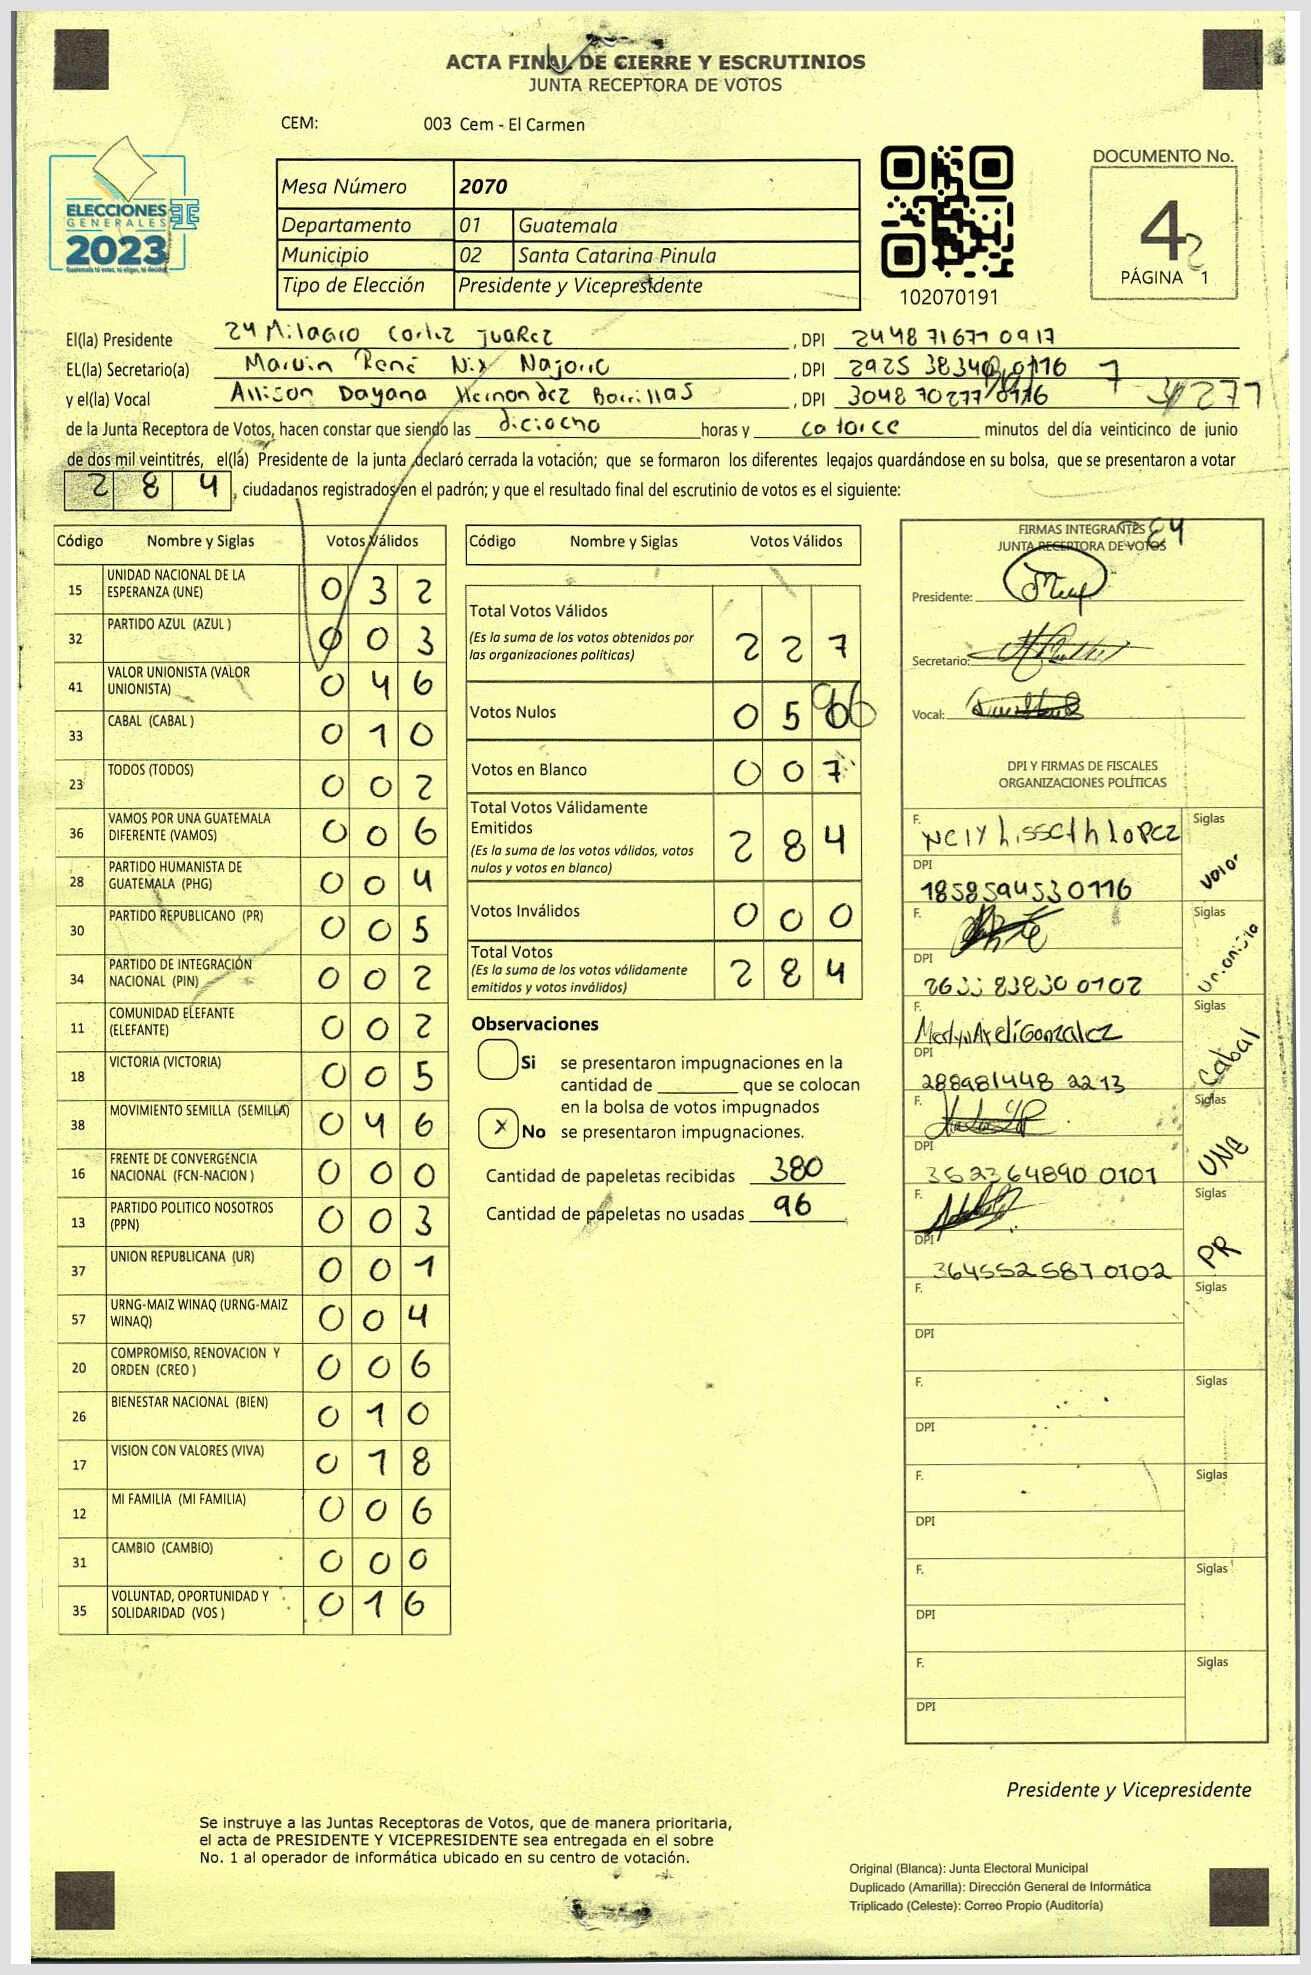 ACTA FINAL DE CIERRE Y ESCRUTINIOS
JUNTA RECEPTORA DE VOTOS
CEM: 003 Cem - El Carmen
ELECCIONES
GENERALES
2023
Guatemala tú votas, tú eliges, tú decides
Mesa Número 2070
Departamento 01 Guatemala
Municipio 02 Santa Catarina Pinula
Tipo de Elección Presidente y Vicepresidente
102070191
DOCUMENTO No.
4
2
PÁGINA 1
El(la) Presidente 24 Milagro Cortez Juarez , DPI 2448 71671 0917
EL(la) Secretario(a) Marvin René Nix Najorro , DPI 2925 38340 0116 7
y el(la) Vocal Allison Dayana Hernondez Barrillas , DPI 3048 70277 0116 277
de la Junta Receptora de Votos, hacen constar que siendo las diciocho horas y catorce minutos del día veinticinco de junio
de dos mil veintitrés, el(la) Presidente de la junta declaró cerrada la votación; que se formaron los diferentes legajos guardándose en su bolsa, que se presentaron a votar
2 8 4 , ciudadanos registrados en el padrón; y que el resultado final del escrutinio de votos es el siguiente:
Código Nombre y Siglas Votos Válidos
15 UNIDAD NACIONAL DE LA ESPERANZA (UNE) 0 3 2
32 PARTIDO AZUL (AZUL ) 0 0 3
41 VALOR UNIONISTA (VALOR UNIONISTA) 0 4 6
33 CABAL (CABAL ) 0 1 0
23 TODOS (TODOS) 0 0 2
36 VAMOS POR UNA GUATEMALA DIFERENTE (VAMOS) 0 0 6
28 PARTIDO HUMANISTA DE GUATEMALA (PHG) 0 0 4
30 PARTIDO REPUBLICANO (PR) 0 0 5
34 PARTIDO DE INTEGRACIÓN NACIONAL (PIN) 0 0 2
11 COMUNIDAD ELEFANTE (ELEFANTE) 0 0 2
18 VICTORIA (VICTORIA) 0 0 5
38 MOVIMIENTO SEMILLA (SEMILLA) 0 4 6
16 FRENTE DE CONVERGENCIA NACIONAL (FCN-NACION ) 0 0 0
13 PARTIDO POLITICO NOSOTROS (PPN) 0 0 3
37 UNION REPUBLICANA (UR) 0 0 1
57 URNG-MAIZ WINAQ (URNG-MAIZ WINAQ) 0 0 4
20 COMPROMISO, RENOVACION Y ORDEN (CREO ) 0 0 6
26 BIENESTAR NACIONAL (BIEN) 0 1 0
17 VISION CON VALORES (VIVA) 0 1 8
12 MI FAMILIA (MI FAMILIA) 0 0 6
31 CAMBIO (CAMBIO) 0 0 0
35 VOLUNTAD, OPORTUNIDAD Y SOLIDARIDAD (VOS ) 0 1 6
Código Nombre y Siglas Votos Válidos
Total Votos Válidos
(Es la suma de los votos obtenidos por
las organizaciones políticas) 2 2 7
Votos Nulos 0 5
Votos en Blanco 0 0 7
Total Votos Válidamente
Emitidos
(Es la suma de los votos válidos, votos
nulos y votos en blanco) 2 8 4
Votos Inválidos 0 0 0
Total Votos
(Es la suma de los votos válidamente
emitidos y votos inválidos) 2 8 4
Observaciones
Si se presentaron impugnaciones en la
cantidad de ________ que se colocan
en la bolsa de votos impugnados
X No se presentaron impugnaciones.
Cantidad de papeletas recibidas 380
Cantidad de papeletas no usadas 96
FIRMAS INTEGRANTES
JUNTA RECEPTORA DE VOTOS
Presidente:
Secretario:
Vocal:
DPI Y FIRMAS DE FISCALES
ORGANIZACIONES POLÍTICAS
F. Nely Lisseth Lopez Siglas Valor
DPI 1858594530116
F. Siglas Unionista
DPI 2633 83830 0102
F. Merlyn Areli Gonzalez Siglas Cabal
DPI 288981448 2213
F. Siglas UNE
DPI 352364890 0101
F. Siglas PR
DPI 364552587 0102
F. Siglas
DPI
F. Siglas
DPI
F. Siglas
DPI
F. Siglas
DPI
F. Siglas
DPI
Presidente y Vicepresidente
Se instruye a las Juntas Receptoras de Votos, que de manera prioritaria,
el acta de PRESIDENTE Y VICEPRESIDENTE sea entregada en el sobre
No. 1 al operador de informática ubicado en su centro de votación.
Original (Blanca): Junta Electoral Municipal
Duplicado (Amarilla): Dirección General de Informática
Triplicado (Celeste): Correo Propio (Auditoría)